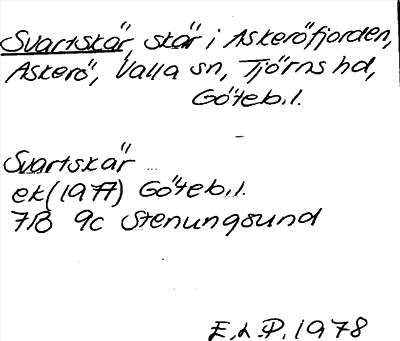 Svartskär, skär i Askeröfjorden,
Askerö, Valla sn, Tjörns hd,
Göteb.l.
Svartskär
ek (1977) Göteb.l.
7B 9c Stenungsund
E.L.P. 1978